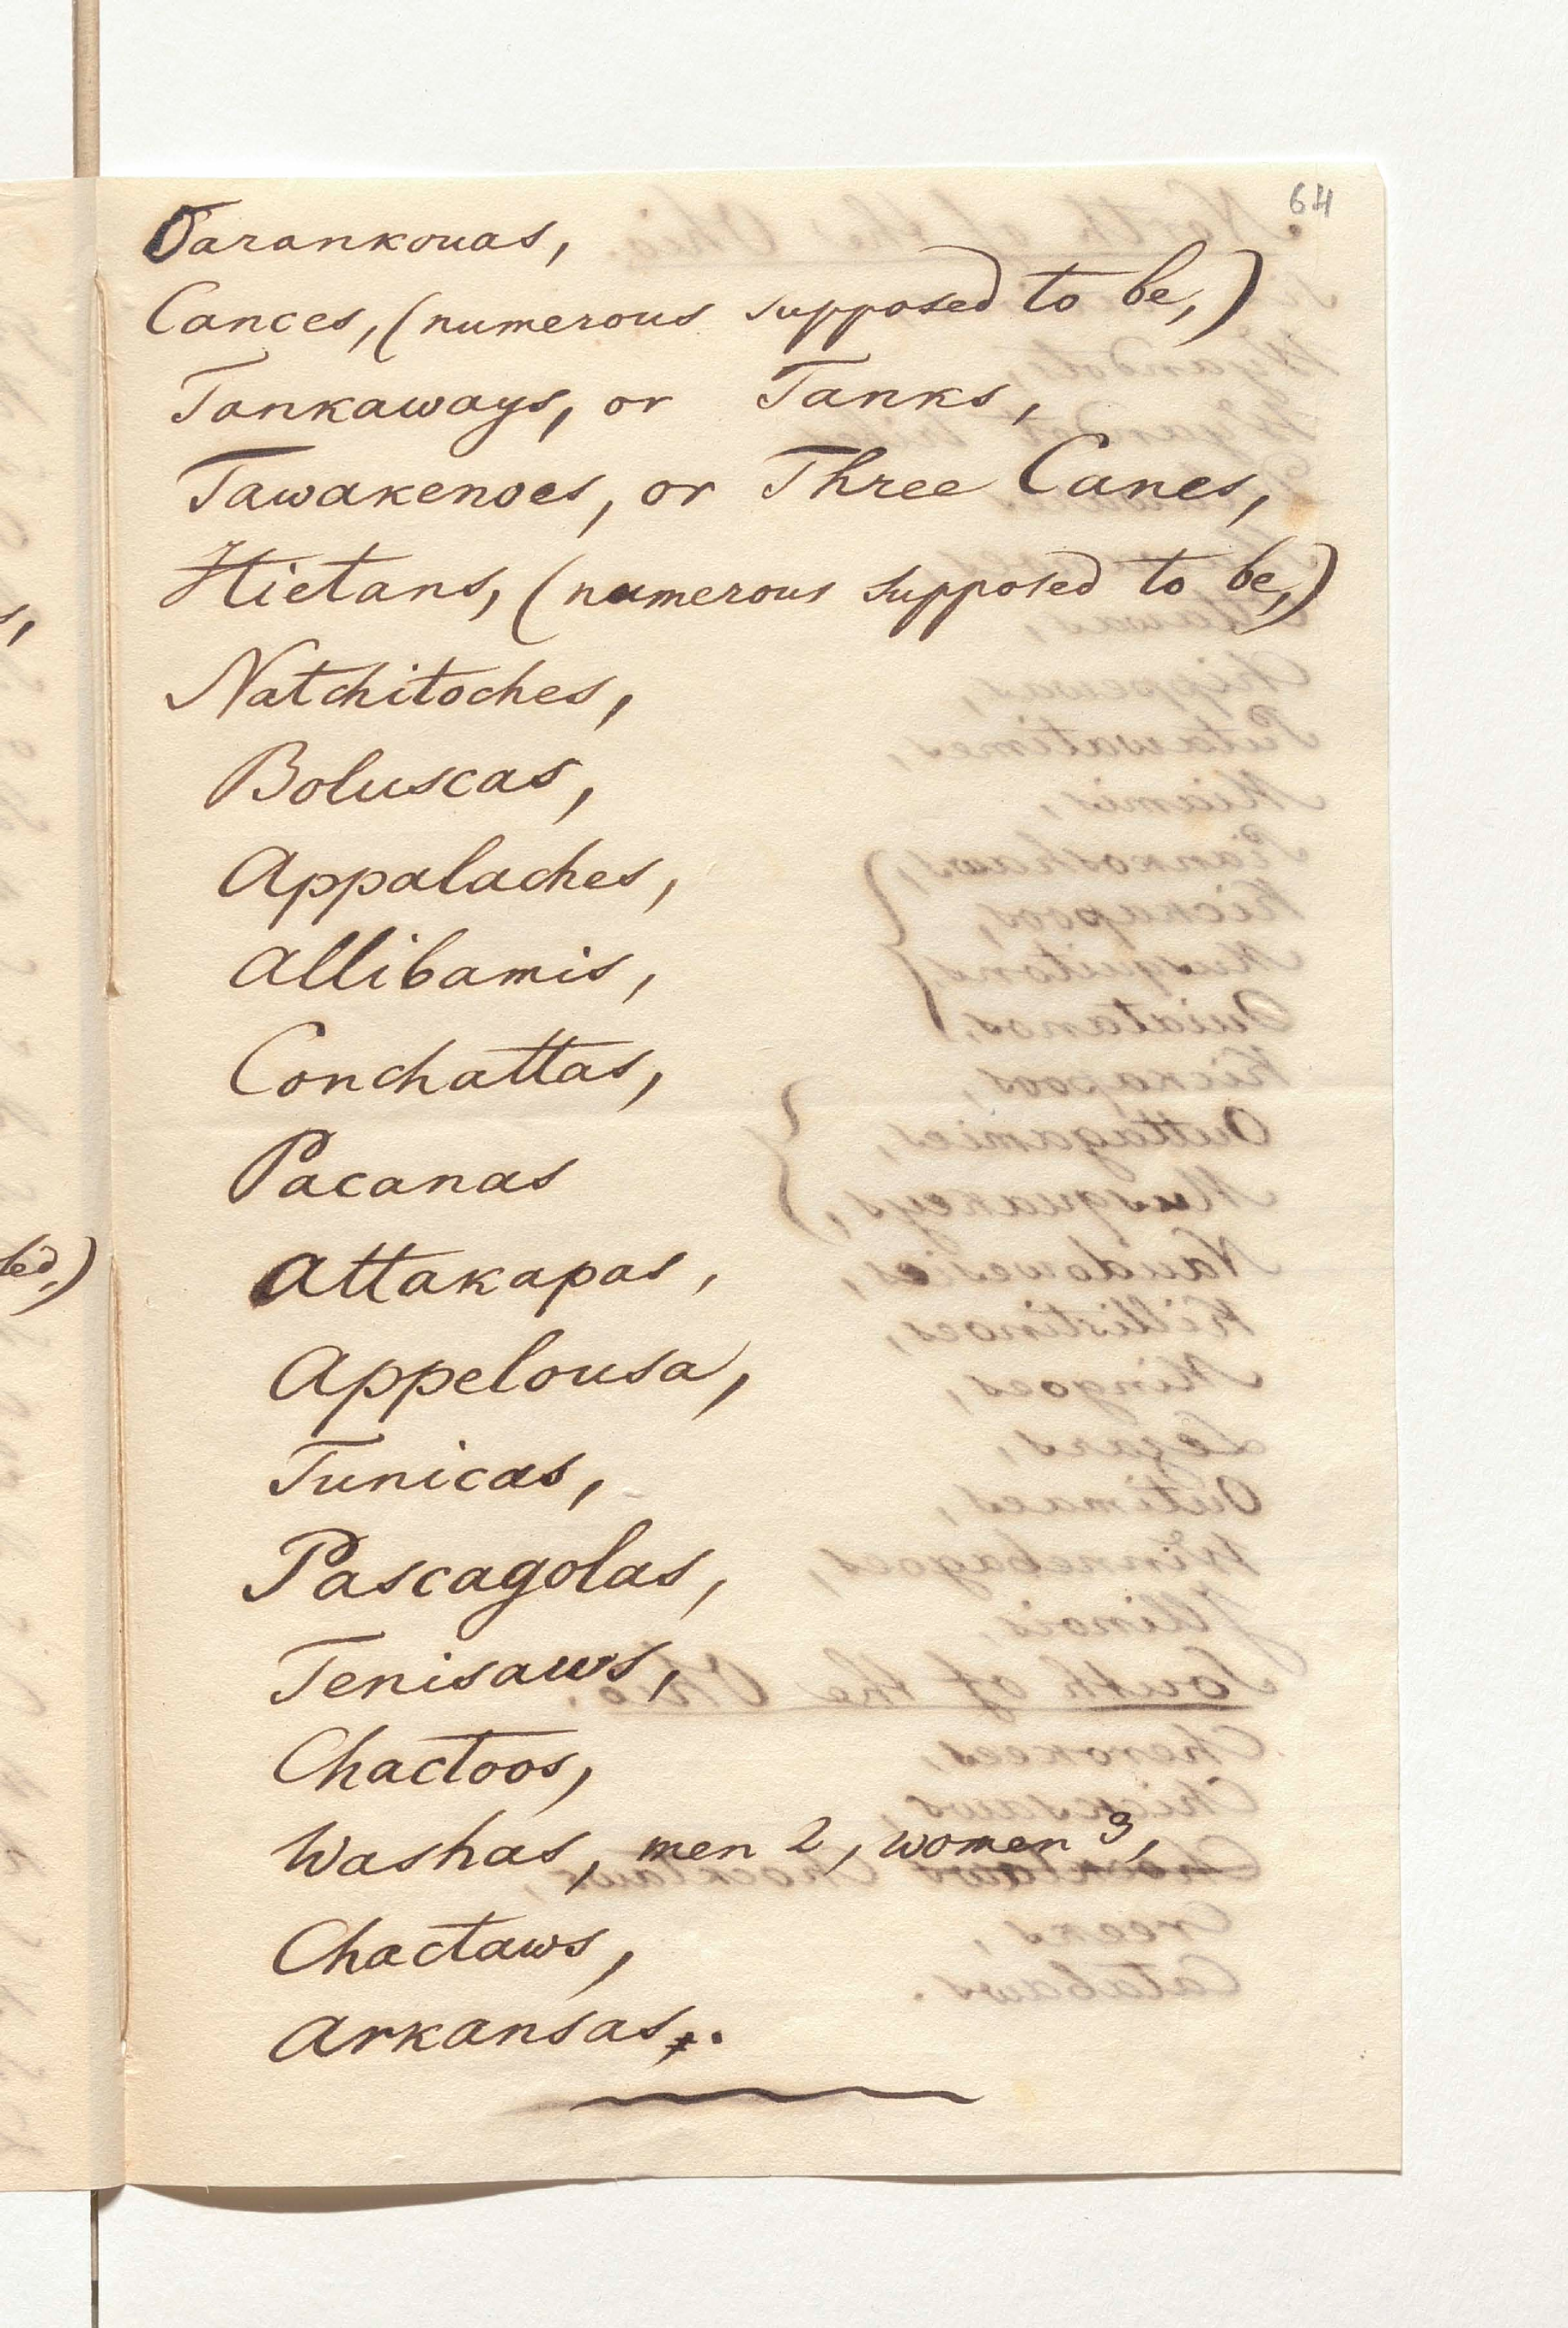 64
Tarankouas,
Cances, (numerous supposed to be,)
Tankaways, or Tanks,
Tawakenoes, or Three Canes,
Hietans, (numerous supposed to be,)
Natchitoches,
Boluscas,
Appalaches,
Allibamis,
Conchattas,
Pacanas
Attakapas,
Appelousa,
Tunicas,
Pascagolas,
Tenisaws,
Chactoos,
Washas, men 2, women 3,
Chactaws,
Arkansas,.